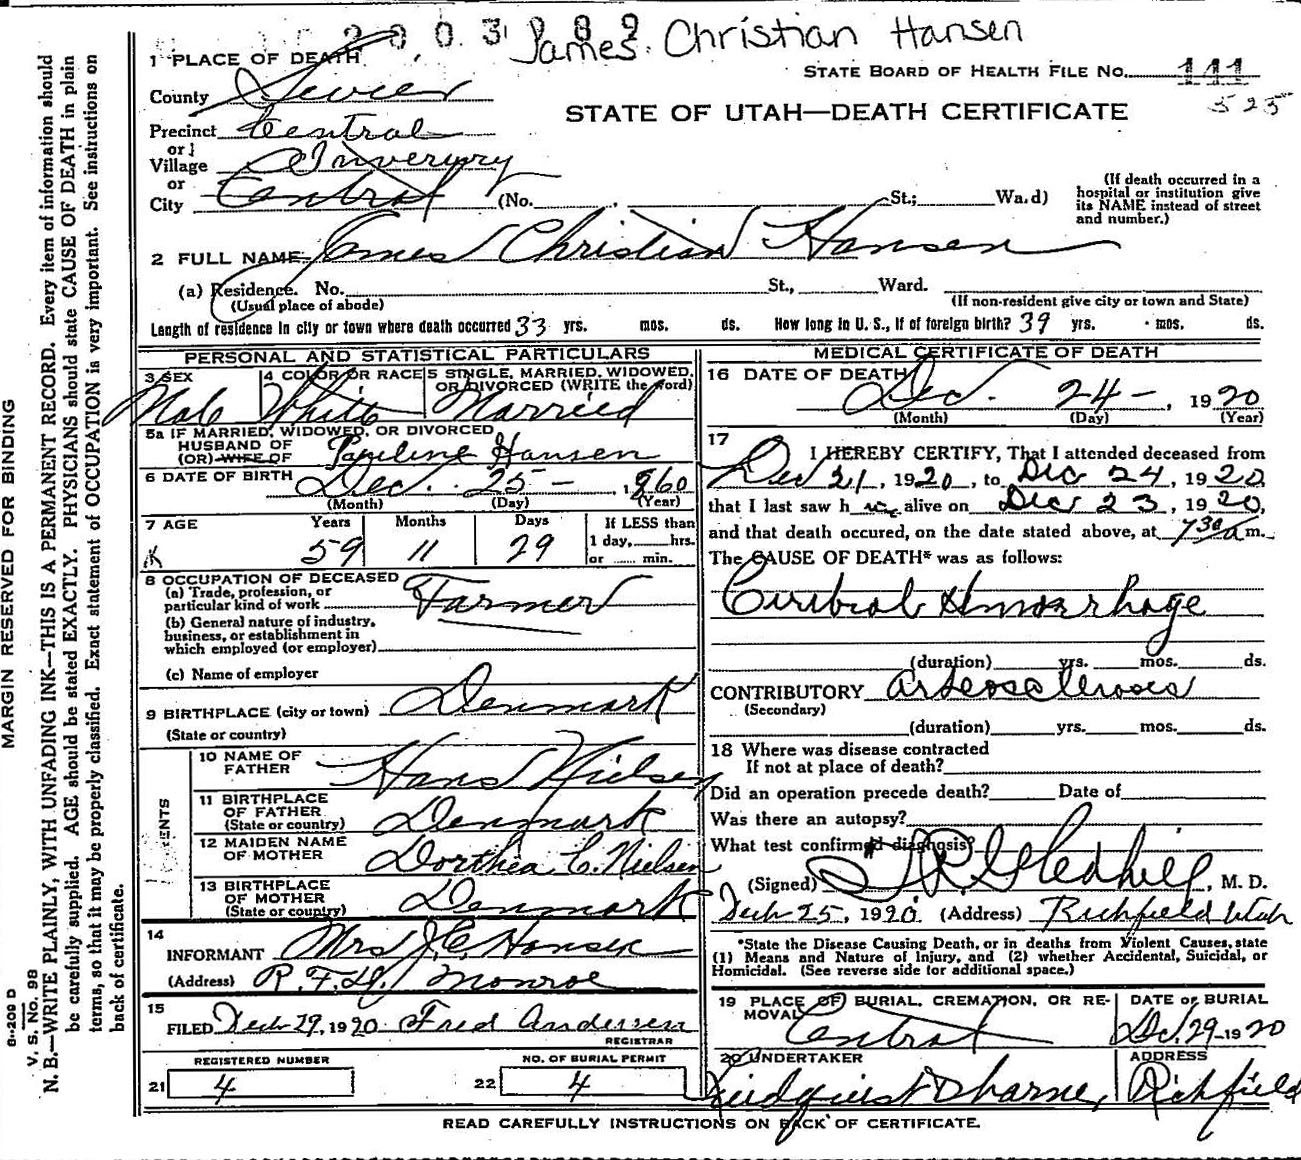 James Christian Hansen
1 PLACE OF DEATH
STATE BOARD OF HEALTH FILE No. 141
525
County Sevier
STATE OF UTAH—DEATH CERTIFICATE
Precinct Central
or
Village Inverury
or
City Central (No. St.; Wa.d)
(If death occurred in a hospital or institution give its NAME instead of street and number.)
2 FULL NAME James Christian Hansen
(a) Residence. No. St., Ward.
(Usual place of abode) (If non-resident give city or town and State)
Length of residence in city or town where death occurred 33 yrs. mos. ds. How long in U. S., if of foreign birth? 39 yrs. mos. ds.
PERSONAL AND STATISTICAL PARTICULARS
3 SEX Male
4 COLOR OR RACE White
5 SINGLE, MARRIED, WIDOWED, OR DIVORCED (WRITE the word) Married
5a IF MARRIED, WIDOWED, OR DIVORCED
HUSBAND OF
(OR) WIFE OF Pauline Hansen
6 DATE OF BIRTH Dec. 25 – , 1860
(Month) (Day) (Year)
7 AGE Years Months Days If LESS than
59 11 29 1 day, hrs.
or min.
8 OCCUPATION OF DECEASED
(a) Trade, profession, or
particular kind of work Farmer
(b) General nature of industry,
business, or establishment in
which employed (or employer)
(c) Name of employer
9 BIRTHPLACE (city or town) Denmark
(State or country)
10 NAME OF
FATHER Hans Nielsen
11 BIRTHPLACE
OF FATHER Denmark
(State or country)
12 MAIDEN NAME
OF MOTHER Dorthea C. Nielsen
13 BIRTHPLACE
OF MOTHER Denmark
(State or country)
14
INFORMANT Mrs J.C. Hansen
(Address) R.F.D. Monroe
15
FILED Dec 29, 1920 Fred Andersen
REGISTRAR
REGISTERED NUMBER
21 4
NO. OF BURIAL PERMIT
22 4
MEDICAL CERTIFICATE OF DEATH
16 DATE OF DEATH
Dec. 24 – , 1920
(Month) (Day) (Year)
17 I HEREBY CERTIFY, That I attended deceased from
Dec 21, 1920, to Dec 24, 1920,
that I last saw him alive on Dec 23, 1920,
and that death occured, on the date stated above, at 730 a m.
The CAUSE OF DEATH* was as follows:
Cerebral Hmorrhage
(duration) yrs. mos. ds.
CONTRIBUTORY Arteosclerosis
(Secondary)
(duration) yrs. mos. ds.
18 Where was disease contracted
If not at place of death?
Did an operation precede death? Date of
Was there an autopsy?
What test confirmed diagnosis?
(Signed) Gledhill, M. D.
Dec 25, 1920. (Address) Richfield Utah
*State the Disease Causing Death, or in deaths from Violent Causes, state
(1) Means and Nature of Injury, and (2) whether Accidental, Suicidal, or
Homicidal. (See reverse side for additional space.)
19 PLACE OF BURIAL, CREMATION, OR REMOVAL
Central
DATE of BURIAL
Dec. 29-1920
20 UNDERTAKER
ADDRESS
Richfield
READ CAREFULLY INSTRUCTIONS ON BACK OF CERTIFICATE.
MARGIN RESERVED FOR BINDING
V. S. No. 98
N. B.—WRITE PLAINLY, WITH UNFADING INK—THIS IS A PERMANENT RECORD. Every item of information should
be carefully supplied. AGE should be stated EXACTLY. PHYSICIANS should state CAUSE OF DEATH in plain
terms, so that it may be properly classified. Exact statement of OCCUPATION is very important. See instructions on
back of certificate.